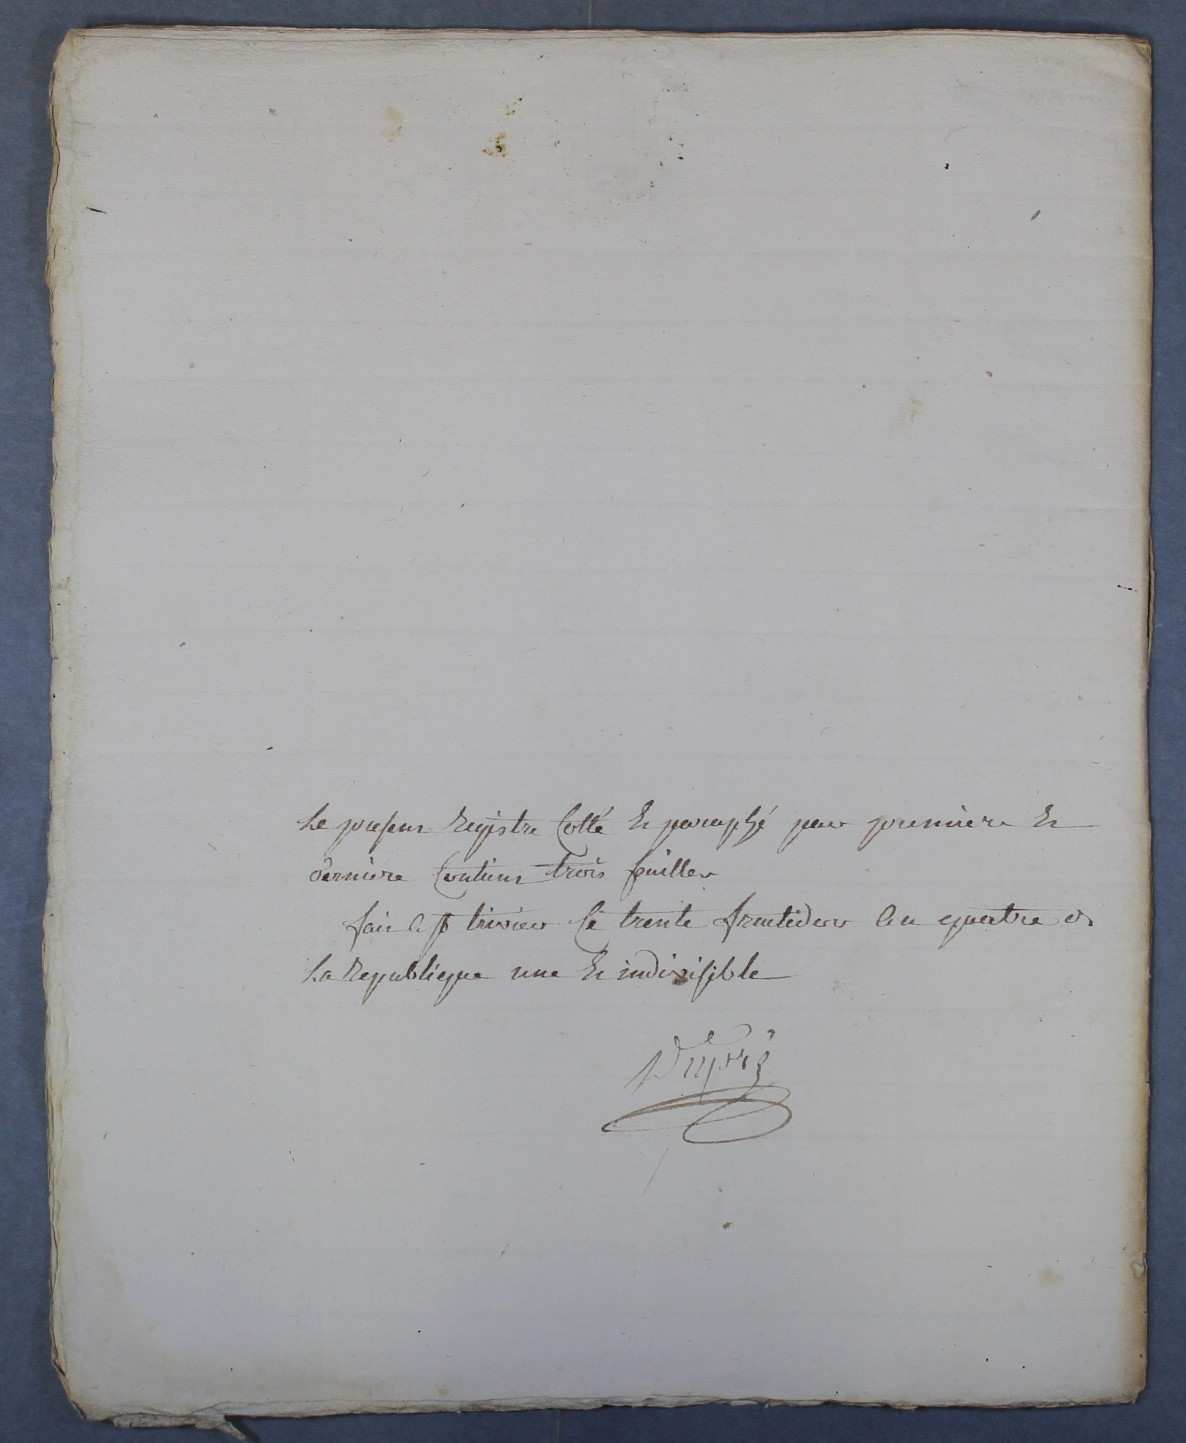 Le present Registre Cotté et paraphé par premiere et
derniere Contient trois feuilles
fait a st trivier le trente fructidor an quatre de
La Republique une et indivisible
Dupré